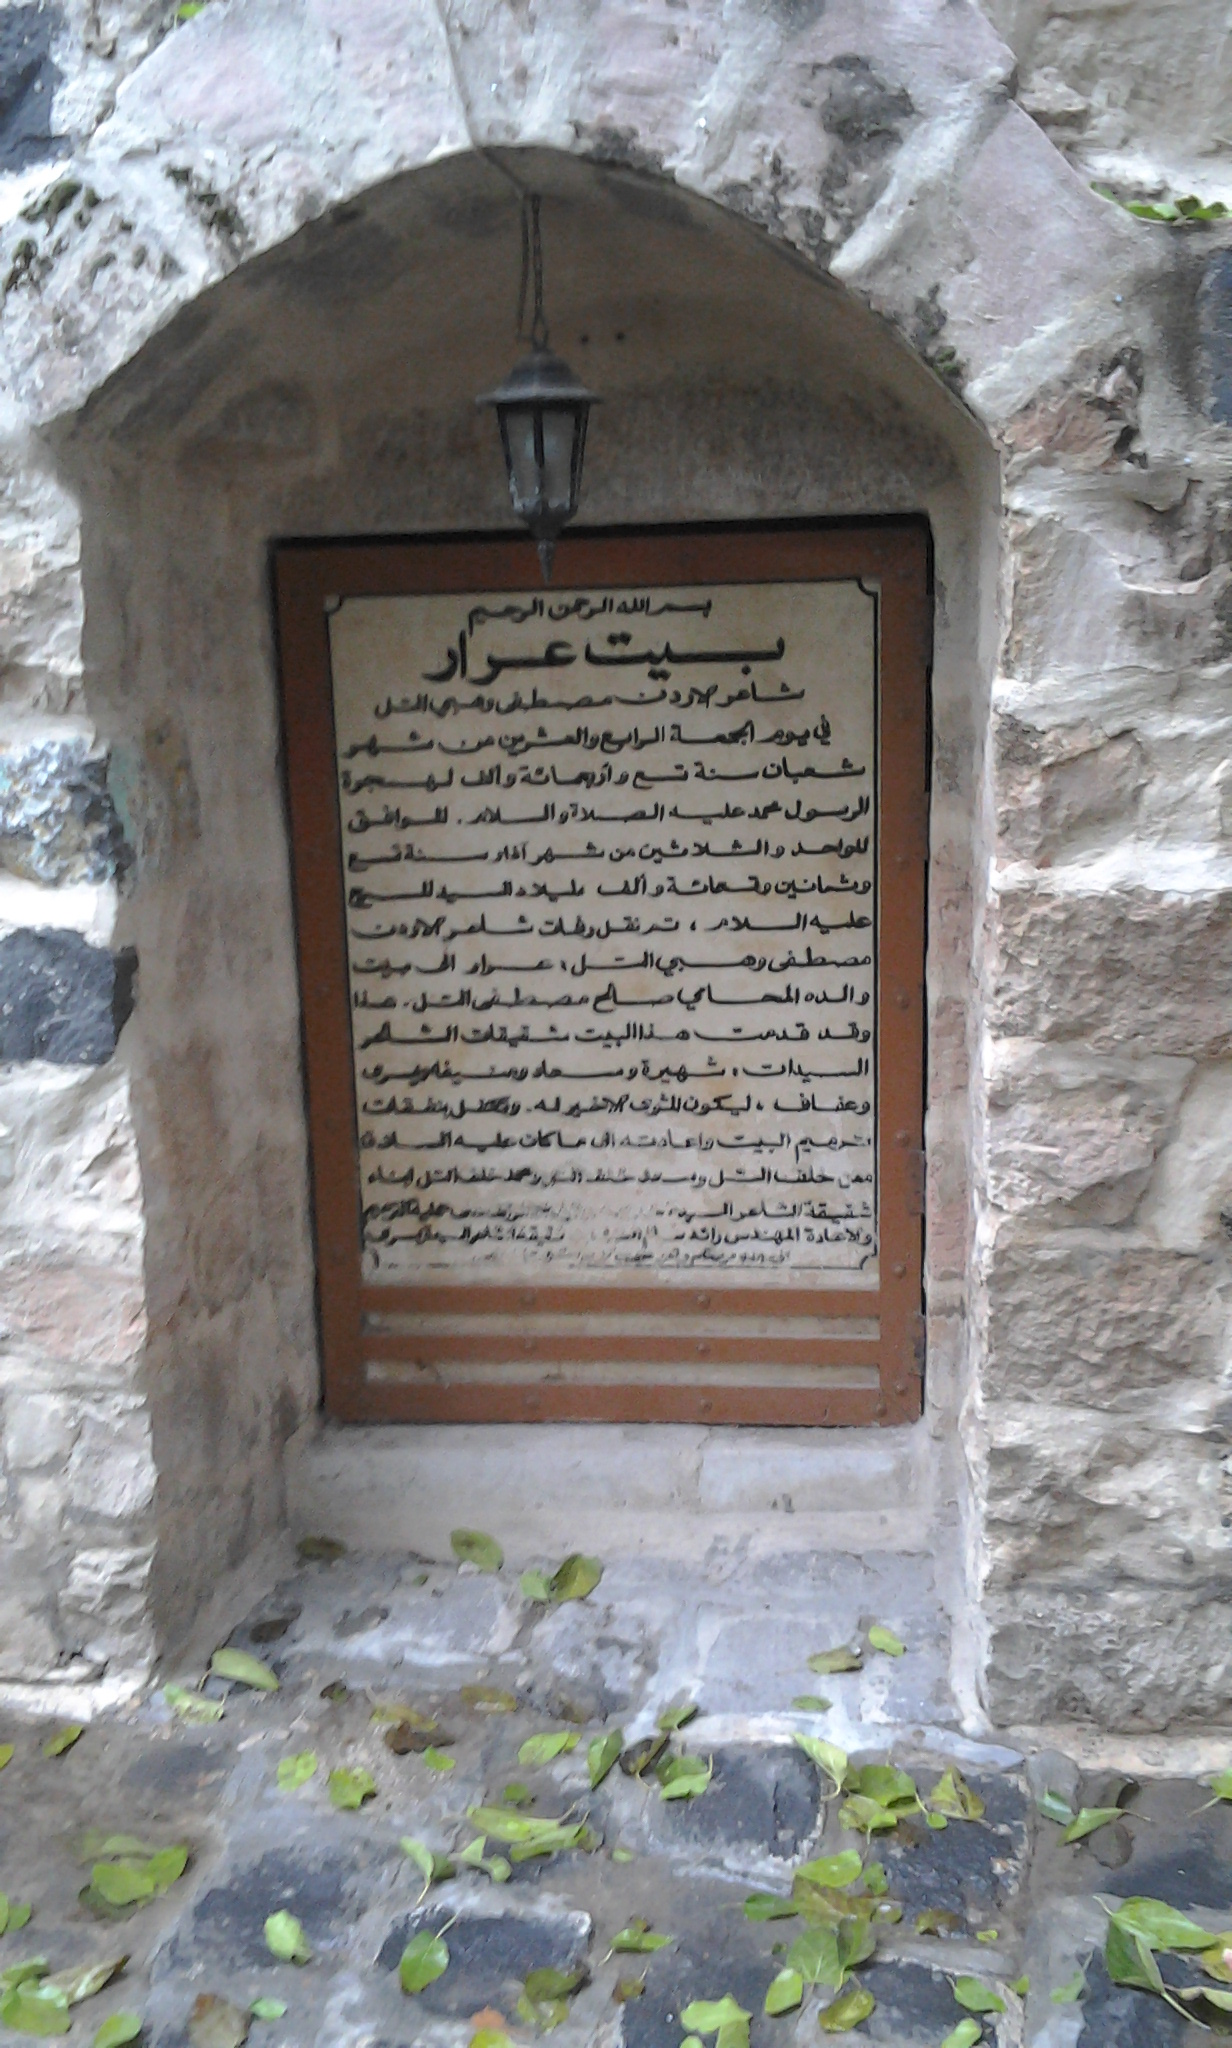 بسم الله الرحمن الرحيم
بيت عرار
شاعر الاردن مصطفى وهبي التل
في يوم الجمعة الرابع والعشرين من شهر
شعبان سنة تسع وأربعمائة وألف لهجرة
الرسول محمد عليه الصلاة والسلام. الموافق
للواحد والثلاثين من شهر آذار سنة تسع
وثمانين وتسعمائة وألف لميلاد السيد المسيح
عليه السلام، تم نقل رفات شاعر الاردن
مصطفى وهبي التل، عرار الى بيت
والده المحامي صالح مصطفى التل. هذا
وقد قدمت هذا البيت شقيقات الشاعر
السيدات، شهيرة وسعاد ومنيفه ويسرى
وعفاف، ليكون المثوى الاخير له. وتكفل بنفقات
ترميم البيت واعادته الى ما كان عليه السادة
معن خلف التل وسعد خلف التل ومحمد خلف التل ابناء
شقيقة الشاعر
والاعادة المهندس رائد شقيقة الشاعر